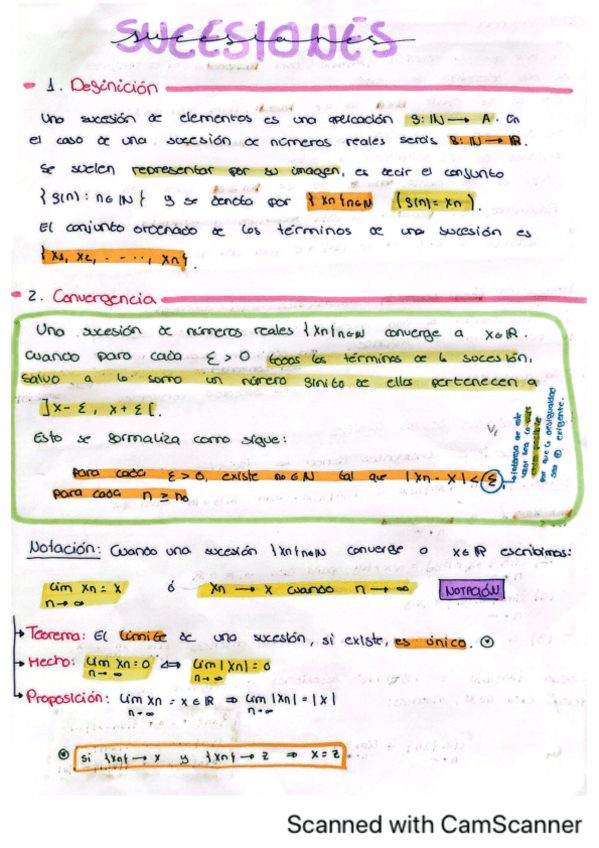 SUCESIONES
sucesiones
1. Definición
Una sucesión de elementos es una aplicación S: ℕ → A. En
el caso de una sucesión de números reales será S: ℕ → ℝ.
Se suelen representar por su imagen, es decir el conjunto
{S(n) : n ∈ ℕ} y se denota por {xn}n∈ℕ (S(n) = xn).
El conjunto ordenado de los términos de una sucesión es
{x1, x2, ...., xn}.
2. Convergencia
Una sucesión de números reales {xn}n∈ℕ converge a x∈ℝ.
Cuando para cada ε > 0 todos los términos de la sucesión,
salvo a lo sumo un número finito de ellos pertenecen a
]x-ε, x+ε[.
Esto se formaliza como sigue:
para cada ε > 0, existe n0∈ℕ tal que |xn - x| < ε
para cada n ≥ n0
valor sea lo más
que la desigualdad
sea exigente.
Notación: Cuando una sucesión {xn}n∈ℕ converge a x∈ℝ escribimos:
lim xn = x ó xn → x cuando n → ∞ NOTACIÓN
n→∞
Teorema: El límite de una sucesión, si existe, es único.
Hecho: lim xn = 0 ⇔ lim |xn| = 0
n→∞ n→∞
Proposición: lim xn = x ∈ ℝ ⇒ lim |xn| = |x|
n→∞ n→∞
si {xn} → x y {xn} → z ⇒ x = z.
Scanned with CamScanner